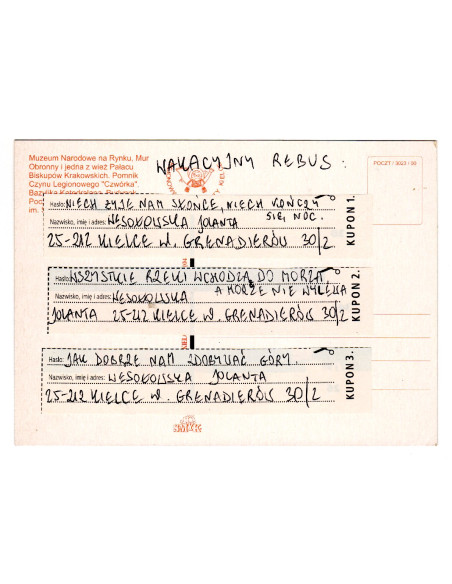 Muzeum Narodowe na Rynku, Mur
Obronny i jedna z wież Pałacu
Biskupów Krakowskich. Pomnik
Czynu Legionowego "Czwórka".
Bazylika Katedralna.
im.
WAKACYJNY REBUS:
POCZT / 3023 / 99
Hasło: NIECH ŻYJE NAM SŁOŃCE, NIECH KOŃCZY
SIĘ NOC.
Nazwisko, imię i adres: WESOŁOWSKA JOLANTA
25-212 KIELCE W. GRENADIERÓW 30/2
KUPON 1.
Hasło: WSZYSTKIE RZEKI WCHODZĄ DO MORZA
A MORZE NIE WYLEWA
Nazwisko, imię i adres: WESOŁOWSKA
JOLANTA 25-212 KIELCE W. GRENADIERÓW 30/2
KUPON 2.
Hasło: JAK DOBRZE NAM ZDOBYWAĆ GÓRY.
Nazwisko, imię i adres: WESOŁOWSKA JOLANTA
25-212 KIELCE W. GRENADIERÓW 30/2
KUPON 3.